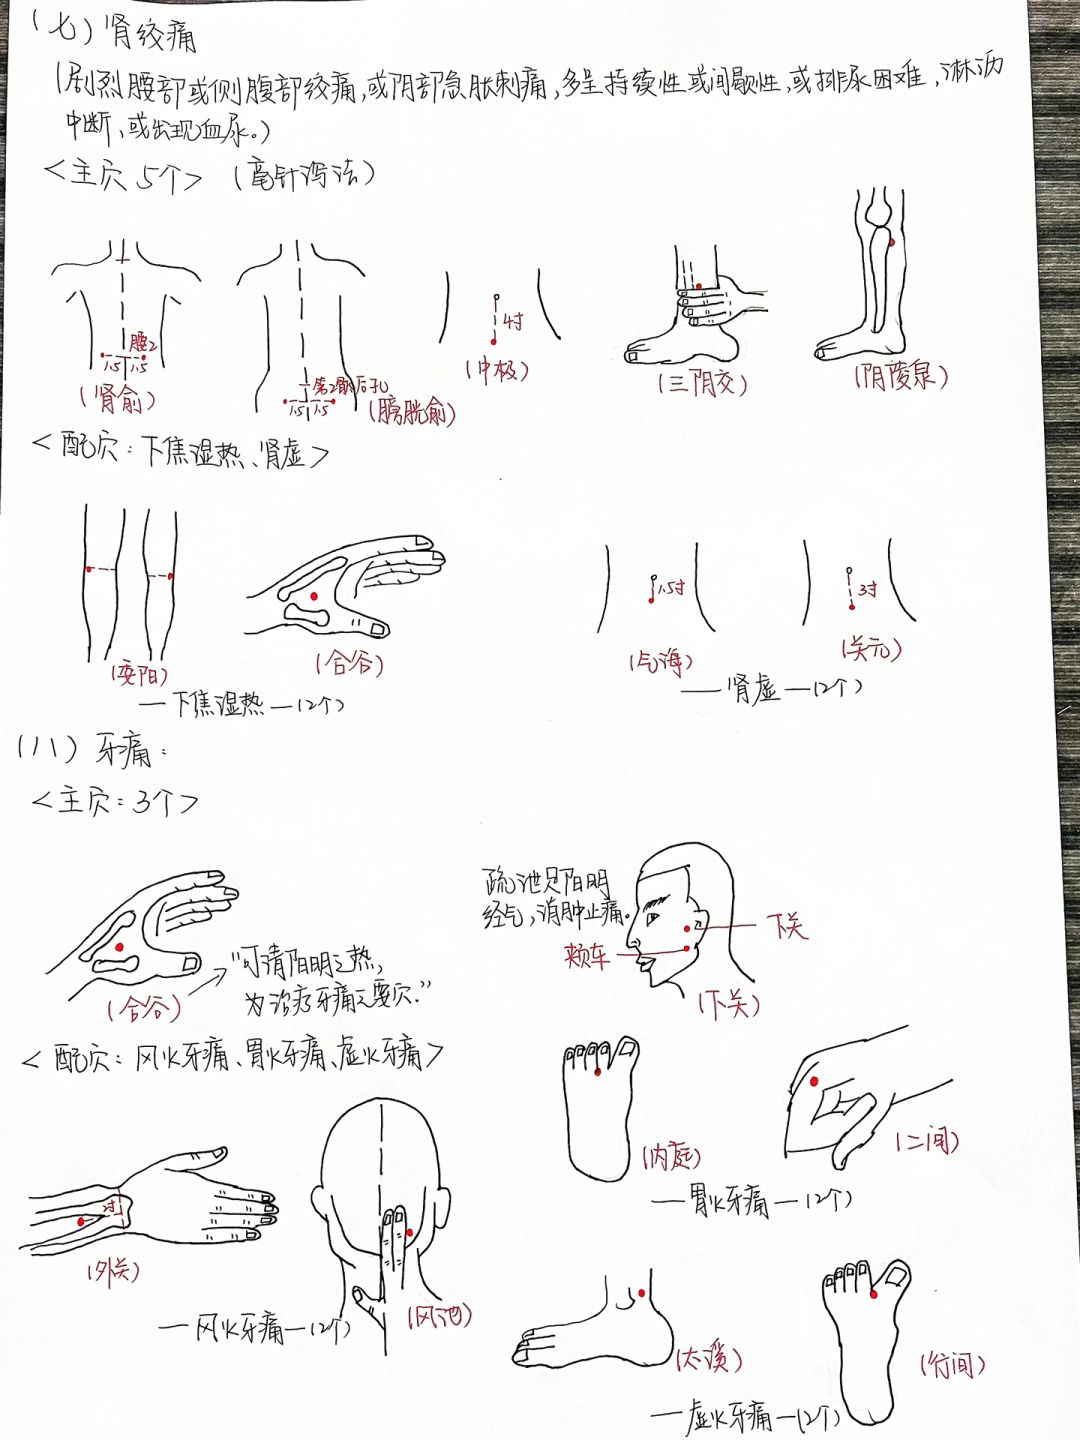 (七)肾绞痛
(剧烈腰部或侧腹部绞痛,或阴部急胀刺痛,多呈持续性或间歇性,或排尿困难,淋沥
中断、或出现血尿。)
<主穴5个> (毫针泻法)
腰2
1.5 1.5
(肾俞)
第2骶后孔
1.5 1.5
(膀胱俞)
4寸
(中极)
(三阴交)
(阴陵泉)
<配穴:下焦湿热、肾虚>
(委阳)
(合谷)
—下焦湿热—(2个)
1.5寸
(气海)
3寸
(关元)
—肾虚—(2个)
(八)牙痛:
<主穴:3个>
(合谷)
"可清阳明之热,
为治疗牙痛之要穴."
疏泄足阳明
经气,消肿止痛。
下关
颊车
(下关)
<配穴:风火牙痛、胃火牙痛、虚火牙痛>
2寸
(外关)
(风池)
—风火牙痛—(2个)
(内庭)
(二间)
—胃火牙痛—(2个)
(太溪)
(行间)
—虚火牙痛—(2个)